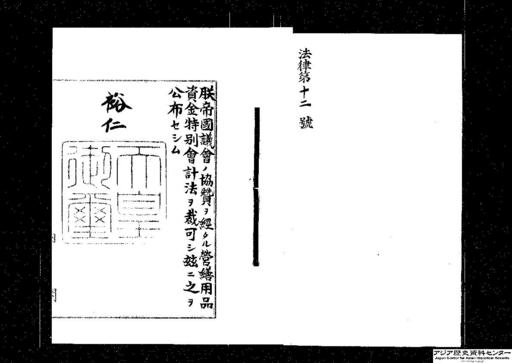 法律第十二號
朕帝國議會ノ協贊ヲ經タル營繕用品
資金特別會計法ヲ裁可シ玆ニ之ヲ
公布セシム
裕仁
天皇
御璽
アジア歴史資料センター
Japan Center for Asian Historical Records